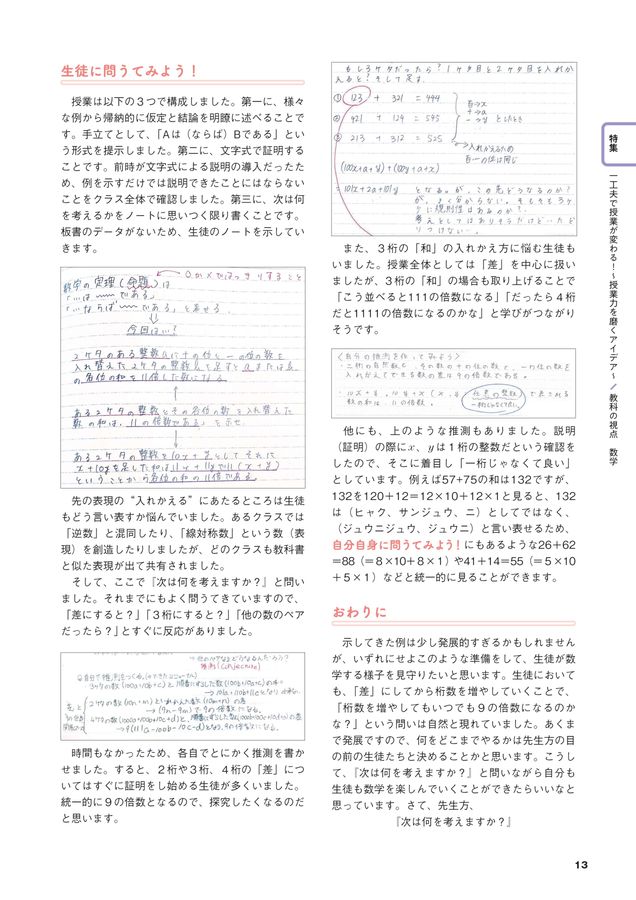 生徒に問うてみよう！
授業は以下の３つで構成しました。第一に、様々
な例から帰納的に仮定と結論を明瞭に述べることで
す。手立てとして、「Aは（ならば）Bである」とい
う形式を提示しました。第二に、文字式で証明する
ことです。前時が文字式による説明の導入だったた
め、例を示すだけでは説明できたことにはならない
ことをクラス全体で確認しました。第三に、次は何
を考えるかをノートに思いつく限り書くことです。
板書のデータがないため、生徒のノートを示してい
きます。
数学の定理（命題）は
「…は〜〜である」
「…ならば〜〜である」と表せる。
今回は…？
２ケタのある整数aに十の位と一の位の数を
入れ替えた２ケタの整数を足すとaまたはbの
各位の和を11倍した数になる
ある２ケタの整数とその各位の数を入れ替えた
数の和は、11の倍数である を示せ。
ある２ケタの整数を10x+yとしてそれに
x+10yを足した和は11x+11yで11(x+y)
ということから各位の和の11倍である
先の表現の“入れかえる”にあたるところは生徒
もどう言い表すか悩んでいました。あるクラスでは
「逆数」と混同したり、「線対称数」という数（表
現）を創造したりしましたが、どのクラスも教科書
と似た表現が出て共有されました。
そして、ここで『次は何を考えますか？』と問い
ました。それまでにもよく問うてきていますので、
「差にすると？」「３桁にすると？」「他の数のペア
だったら？」とすぐに反応がありました。
推測！(conjecture)
時間もなかったため、各自でとにかく推測を書か
せました。すると、２桁や３桁、４桁の「差」につ
いてはすぐに証明をし始める生徒が多くいました。
統一的に９の倍数となるので、探究したくなるのだ
と思います。
もし３ケタだったら？１ケタ目と２ケタ目を入れか
えると？そして足す。
① 123 + 321 = 444
② 421 + 124 = 545
③ 213 + 312 = 525
百→x
十→a
一→y とした時
入れかえるため
百一の位は同じ
(100x+a+y)+(100y+a+x)
=101x+2a+101y
また、３桁の「和」の入れかえ方に悩む生徒も
いました。授業全体としては「差」を中心に扱い
ましたが、３桁の「和」の場合も取り上げることで
「こう並べると111の倍数になる」「だったら４桁
だと1111の倍数になるのかな」と学びがつながり
そうです。
〈自分の推測を作ってみよう〉
二桁の自然数と、その数の十の位の数と、一の位の数を
入れかえてできる数の差は９の倍数である。
任意の整数
一桁じゃなくて良い
数の和は、11の倍数。
他にも、上のような推測もありました。説明
（証明）の際にx、yは１桁の整数だという確認を
したので、そこに着目し「一桁じゃなくて良い」
としています。例えば57+75の和は132ですが、
132を120＋12＝12×10＋12×1と見ると、132
は（ヒャク、サンジュウ、ニ）としてではなく、
（ジュウニジュウ、ジュウニ）と言い表せるため、
自分自身に問うてみよう！にもあるような26＋62
＝88（＝８×10＋８×１）や41＋14＝55（＝５×10
＋５×１）などと統一的に見ることができます。
おわりに
示してきた例は少し発展的すぎるかもしれません
が、いずれにせよこのような準備をして、生徒が数
学する様子を見守りたいと思います。生徒において
も、「差」にしてから桁数を増やしていくことで、
「桁数を増やしてもいつでも９の倍数になるのか
な？」という問いは自然と現れていました。あくま
で発展ですので、何をどこまでやるかは先生方の目
の前の生徒たちと決めることかと思います。こうし
て、『次は何を考えますか？』と問いながら自分も
生徒も数学を楽しんでいくことができたらいいなと
思っています。さて、先生方、
『次は何を考えますか？』
特集
一工夫で授業が変わる！〜授業力を磨くアイデア〜／教科の視点 数学
13